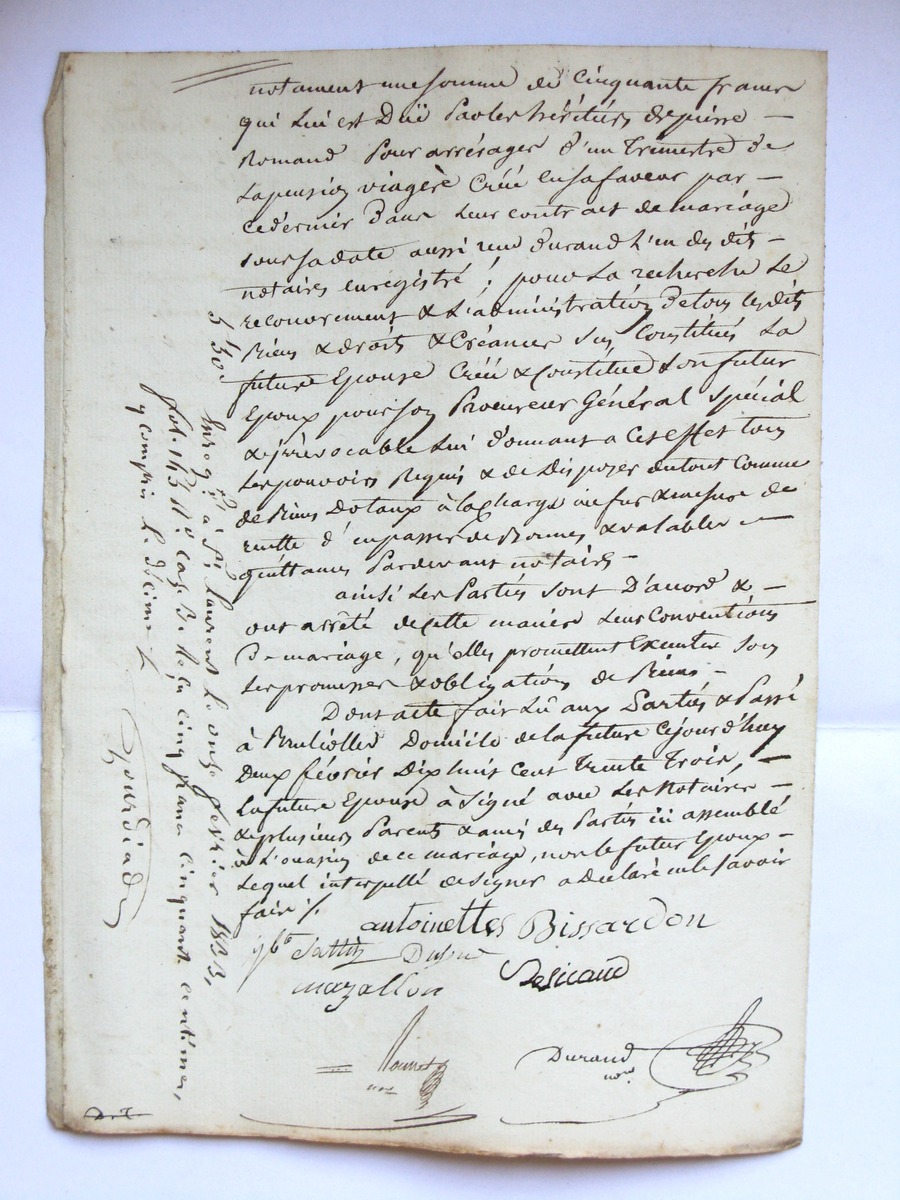 notament une somme de cinquante francs
qui lui est Düe Par les héritiers de pierre —
Romand Pour arrérages d'un Trimestre de
la pension viagère Créée en sa faveur par —
ce dernier dans leur contrat de mariage
sous sa date aussi reçu durand l'un des dits —
notaires enregistré ; pour la recherche Le
recouvrement & L'administration De tous les dits
Biens & droits & Créances sus Constitués La
future Epouse Créé & Constitue Son futur
Epoux pour son Procureur Général Spécial
& irrévocable Lui donnant a cet effet tous
Les pouvoirs Requis & de Disposer du tout Comme
de Biens Dotaux à la charge au fur & mesure de
recette d'en passer de Bonnes & valables —
quittances Pardevant notaires —
ainsi Les Parties sont D'accord & —
ont arrêté de cette manière Leurs Conventions
De mariage, qu'elles promettent Exécuter sous
Les promesses & obligations de Biens —
Dont acte fait Lû aux Parties & Passé
à Brullioles Domicile de la future Cejourd'huy
Deux février Dix huit Cent Trente Trois, —
La future Epouse à Signé avec Les Notaires —
& plusieurs Parents & amis des Parties ici assemblé
à L'occasion de ce mariage, non le futur Epoux —
Lequel interpellé de signer a Déclaré ne le savoir
fair /.
antoinette Bissardon
mazallon
Durand
nore
5 50c
Enregé à St Laurent Le onze février 1833,
fol. 143 Ro caze 3. Reçu cinq francs cinquante centimes,
y compris Le décime